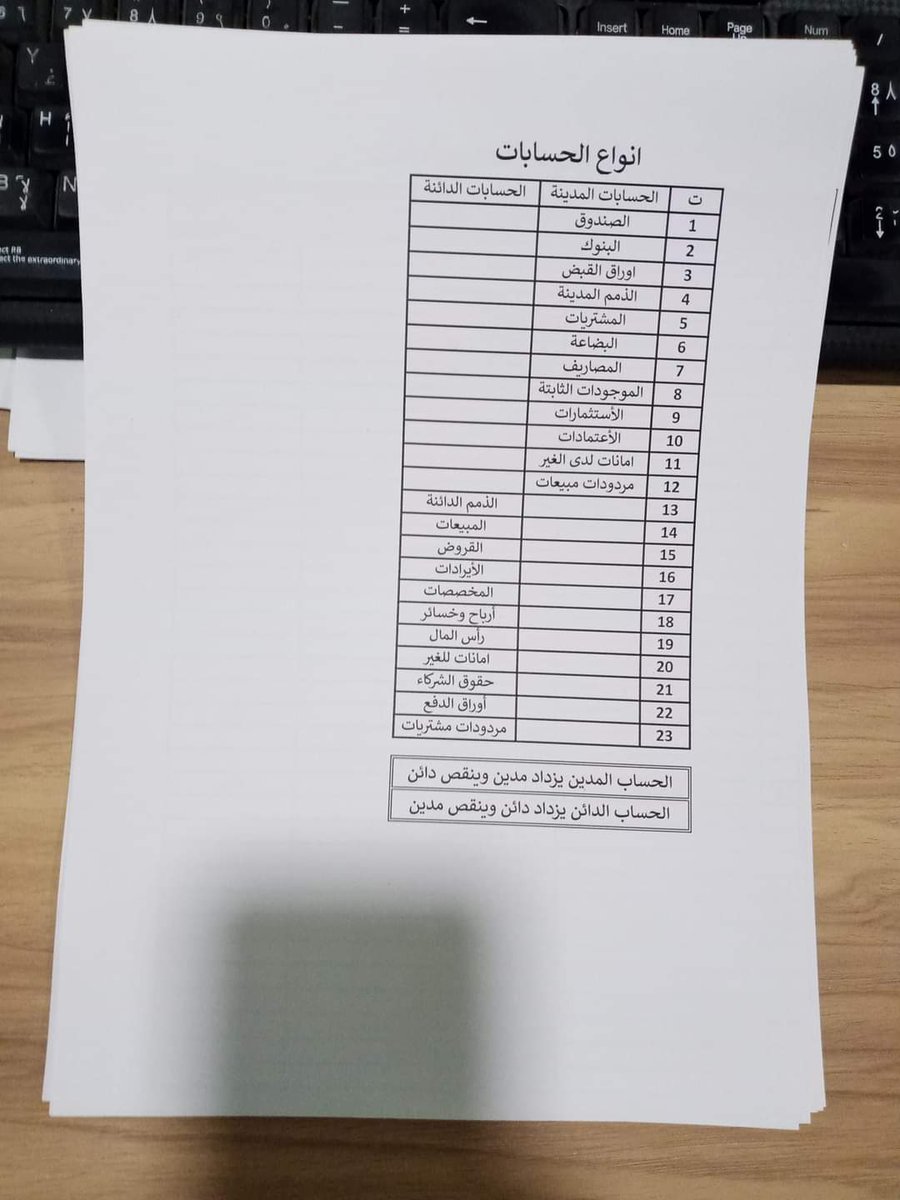 6 ٦ 7 ٧ 8 ٨ 9 ٩ 0 ٠ — - + = ← Insert Home Page Up Num /
Y
H
8 ٨
5 ٥
B N
ect the extraordinary
انواع الحسابات
ت الحسابات المدينة الحسابات الدائنة
1 الصندوق
2 البنوك
3 اوراق القبض
4 الذمم المدينة
5 المشتريات
6 البضاعة
7 المصاريف
8 الموجودات الثابتة
9 الأستثمارات
10 الأعتمادات
11 امانات لدى الغير
12 مردودات مبيعات
13 الذمم الدائنة
14 المبيعات
15 القروض
16 الأيرادات
17 المخصصات
18 أرباح وخسائر
19 رأس المال
20 امانات للغير
21 حقوق الشركاء
22 أوراق الدفع
23 مردودات مشتريات
الحساب المدين يزداد مدين وينقص دائن
الحساب الدائن يزداد دائن وينقص مدين